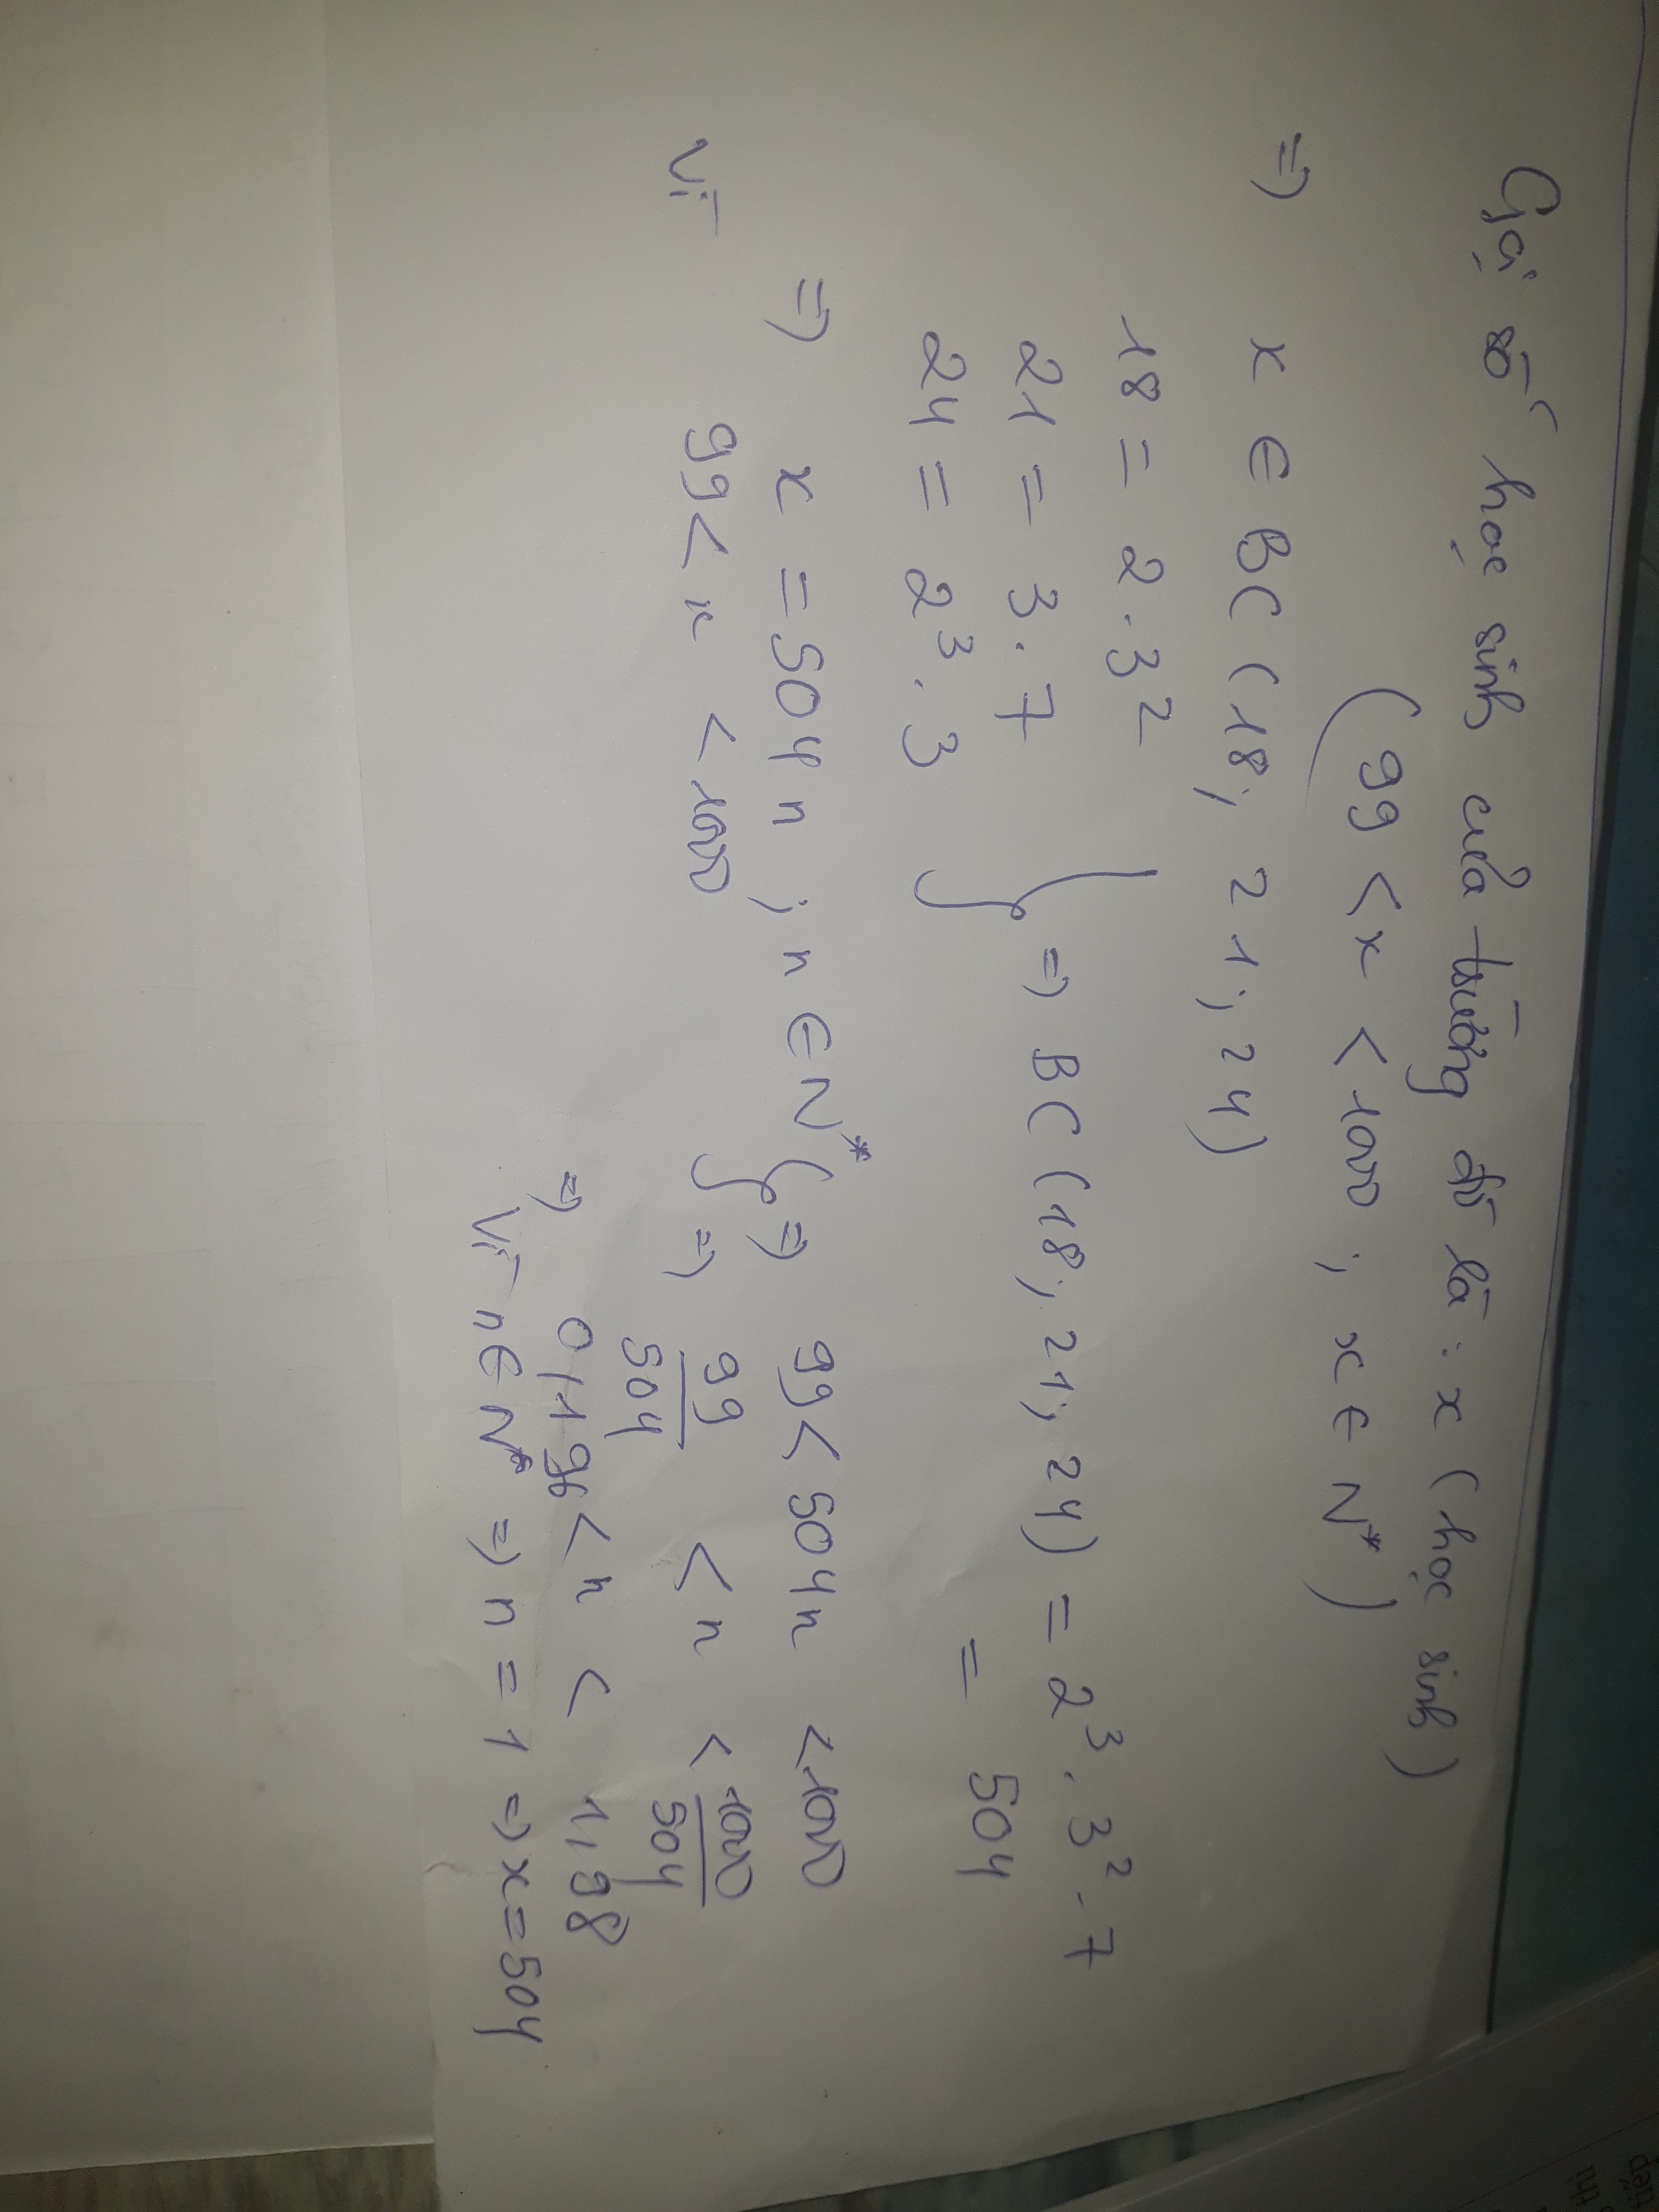 Gọi số học sinh của trường đó là: x (học sinh)
(99 < x < 1000 ; x ∈ N*)
=> x ∈ BC (18; 21; 24)
18 = 2 . 3²
21 = 3 . 7
24 = 2³ . 3
} => BC (18; 21; 24) = 2³ . 3² . 7
= 504
=> x = 504n ; n ∈ N*
Vì 99 < x < 1000
} => 99 < 504n < 1000
=> 99/504 < n < 1000/504
=> 0,196 < n < 1,98
Vì n ∈ N* => n = 1 => x = 504